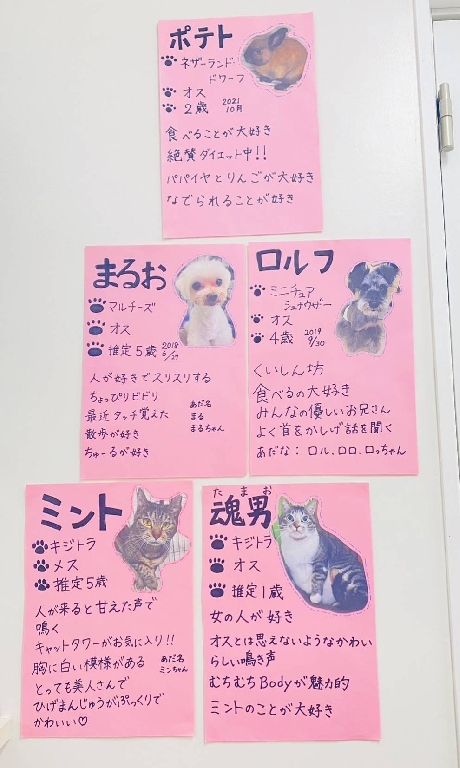 ポテト
ネザーランド・
ドワーフ
オス
2歳 2021
10月
食べることが大好き
絶賛ダイエット中!!
パパイヤとりんごが大好き
なでられることが好き
まるお
マルチーズ
オス
推定5歳 2018
6/27
人が好きでスリスリする
ちょっぴりビビリ
最近タッチ覚えた
散歩が好き
ちゅーるが好き
あだ名
まる
まるちゃん
ロルフ
ミニチュア
シュナウザー
オス
4歳 2019
9/30
くいしん坊
食べるの大好き
みんなの優しいお兄さん
よく首をかしげ話を聞く
あだな:ロル、ロロ、ロっちゃん
ミント
キジトラ
メス
推定5歳
人が来ると甘えた声で
鳴く
キャットタワーがお気に入り!!
胸に白い模様がある
とっても美人さんで
ひげまんじゅうがぷっくりで
かわいい♡
あだ名
ミンちゃん
たまお
魂男
キジトラ
オス
推定1歳
女の人が好き
オスとは思えないようなかわい
らしい鳴き声
むちむちBodyが魅力的
ミントのことが大好き